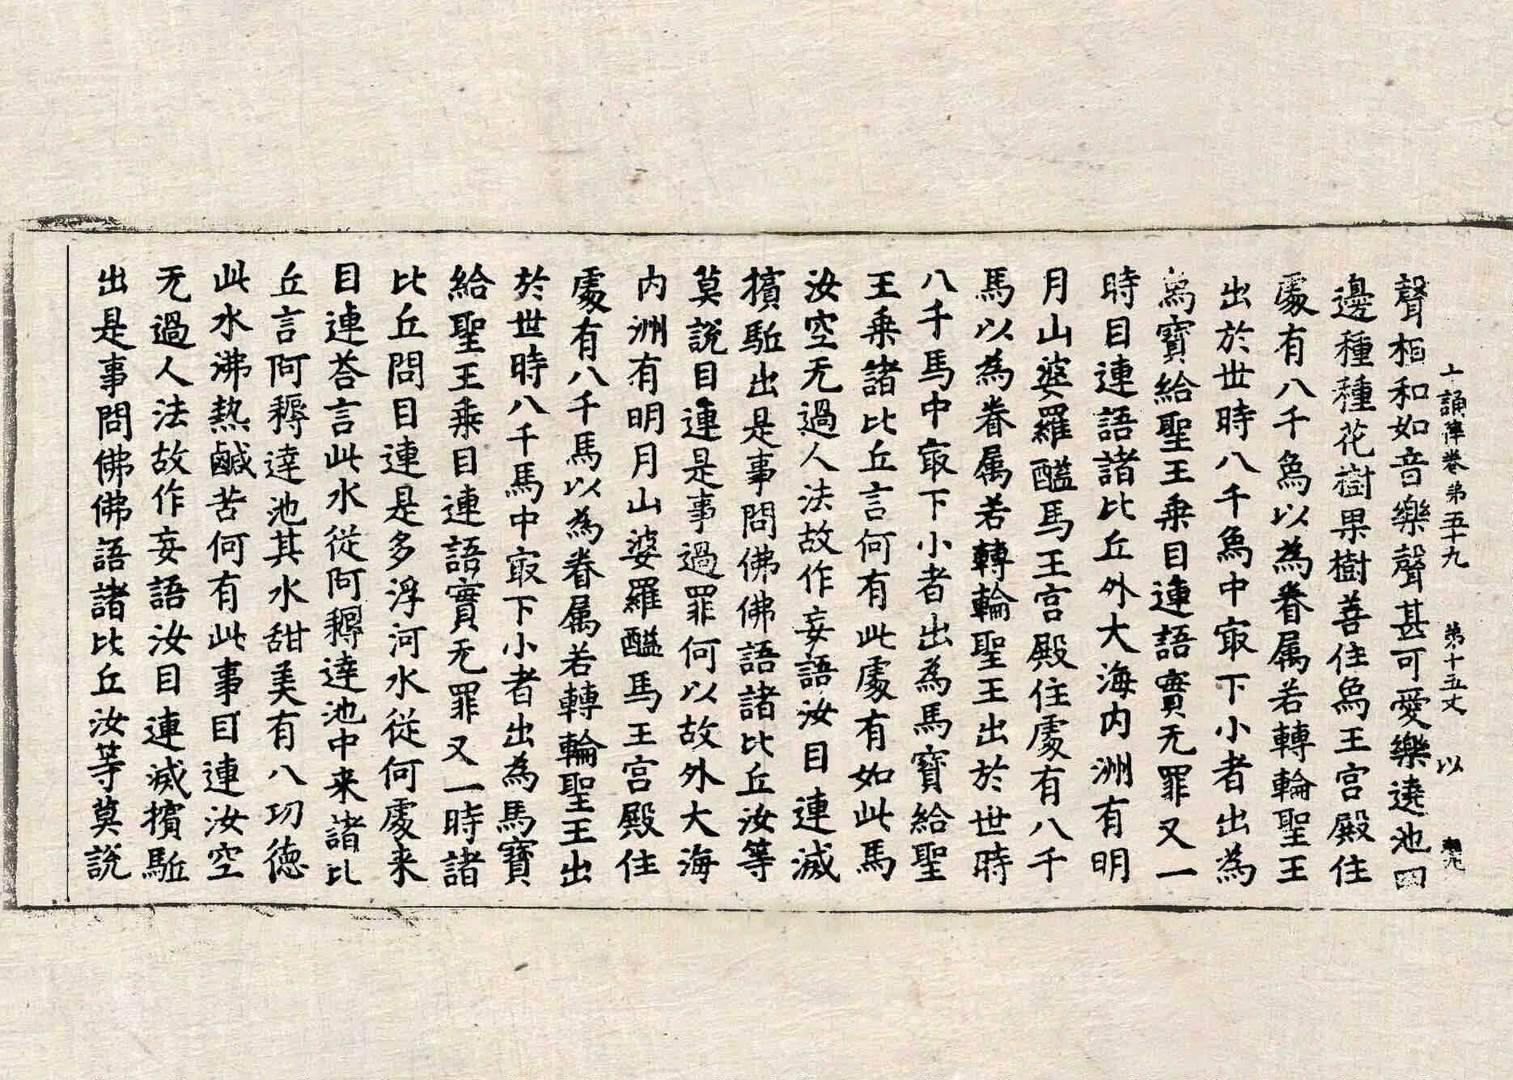 十誦律卷第五十九 第十五丈 以
聲相和如音樂聲甚可愛樂遶池四
邊種種花樹果樹善住象王宮殿住
處有八千象以為眷属若轉輪聖王
出於世時八千象中㝡下小者出為
象寶給聖王乗目連語實无罪又一
時目連語諸比丘外大海内洲有明
月山婆羅醯馬王宮殿住處有八千
馬以為眷属若轉輪聖王出於世時
八千馬中㝡下小者出為馬寶給聖
王乗諸比丘言何有此處有如此馬
汝空无過人法故作妄語汝目連滅
擯駈出是事問佛佛語諸比丘汝等
莫說目連是事過罪何以故外大海
内洲有明月山婆羅醯馬王宮殿住
處有八千馬以為眷属若轉輪聖王出
於世時八千馬中㝡下小者出為馬寶
給聖王乗目連語實无罪又一時諸
比丘問目連是多浮河水従何處来
目連荅言此水従阿耨達池中来諸比
丘言阿耨達池其水甜美有八功徳
此水沸熱鹹苦何有此事目連汝空
无過人法故作妄語汝目連滅擯駈
出是事問佛佛語諸比丘汝等莫說